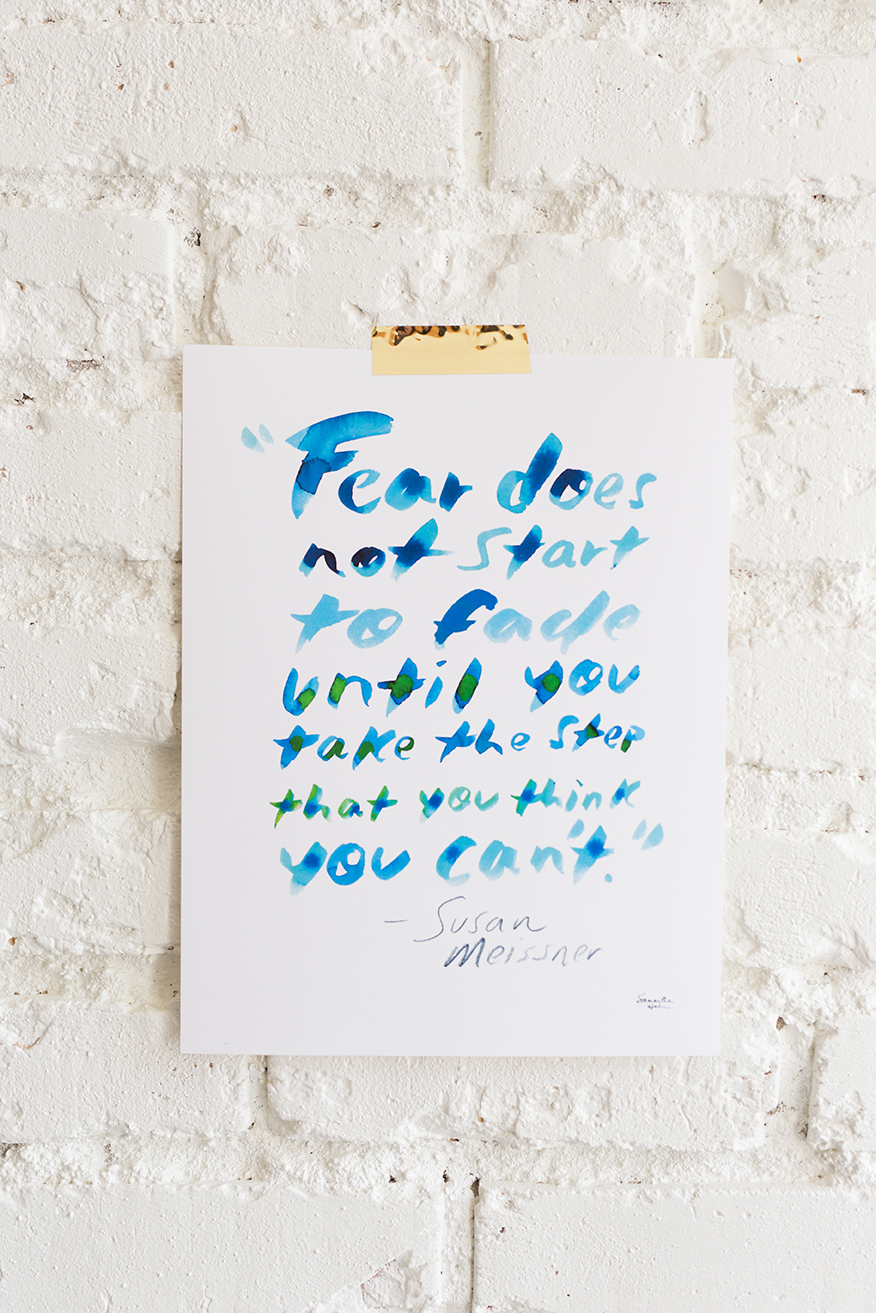 "Fear does
not start
to fade
until you
take the step
that you think
you can't."
- Susan
Meissner
Samantha
Hahn